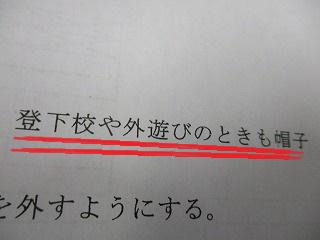 登下校や外遊びのときも帽子
を外すようにする。